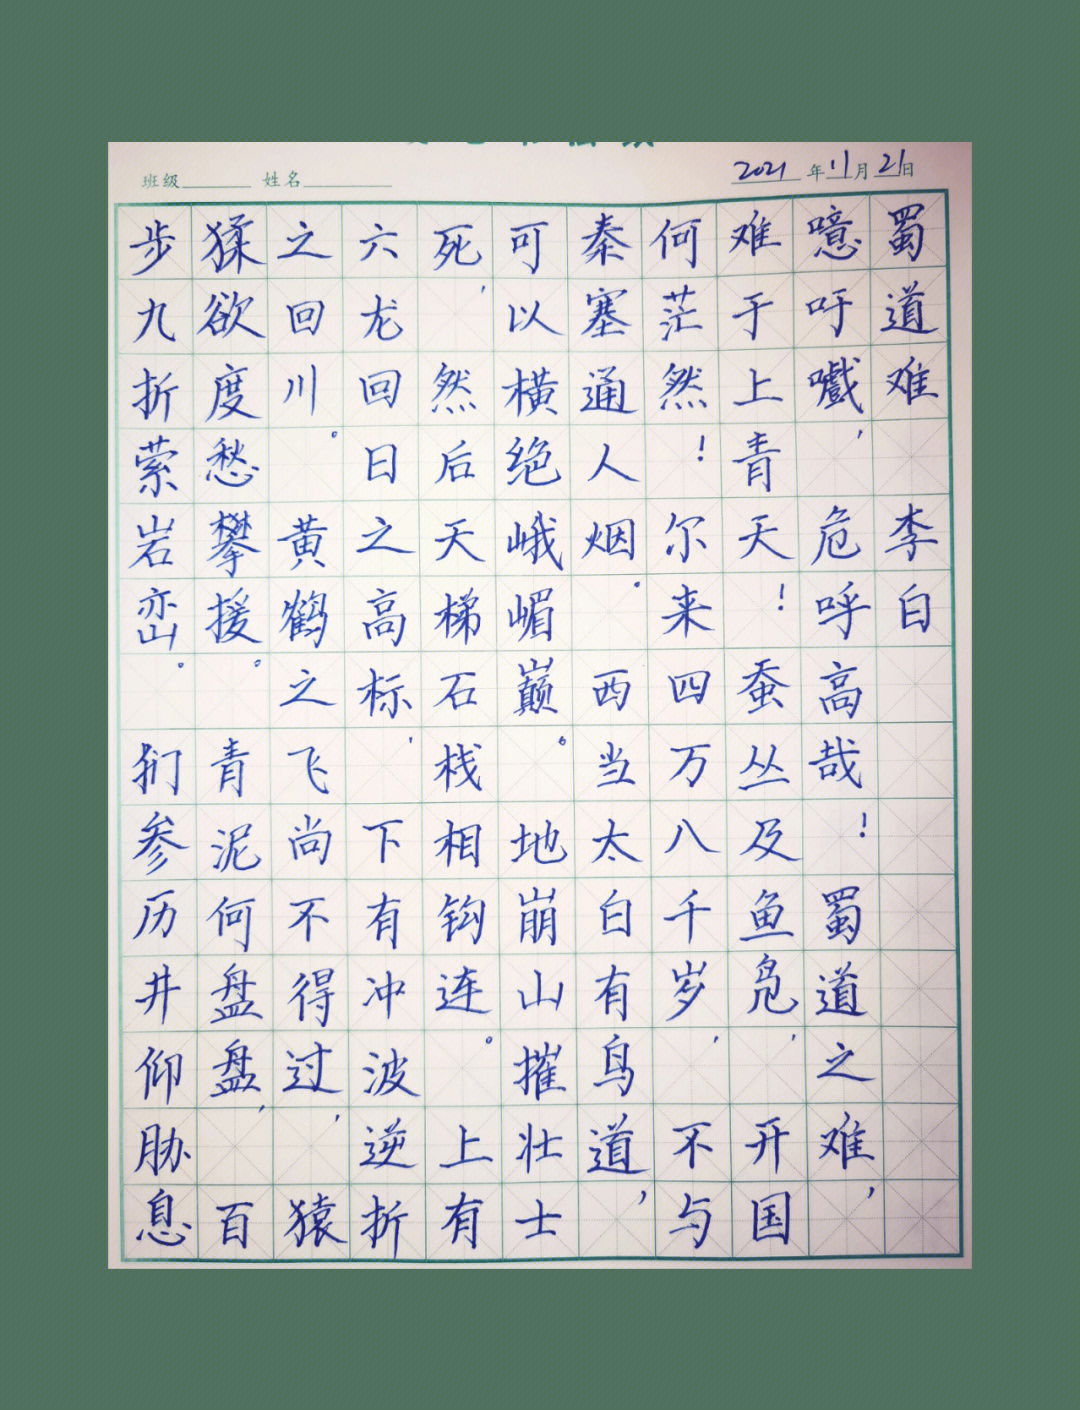 班级 姓名 2021年11月21日
蜀道难 李白
噫吁嚱，危呼高哉！蜀道之难，
难于上青天！蚕丛及鱼凫，开国
何茫然！尔来四万八千岁，不与
秦塞通人烟。西当太白有鸟道，
可以横绝峨嵋巅。地崩山摧壮士
死，然后天梯石栈相钩连。上有
六龙回日之高标，下有冲波逆折
之回川。黄鹤之飞尚不得过，猿
猱欲度愁攀援。青泥何盘盘，百
步九折萦岩峦。扪参历井仰胁息